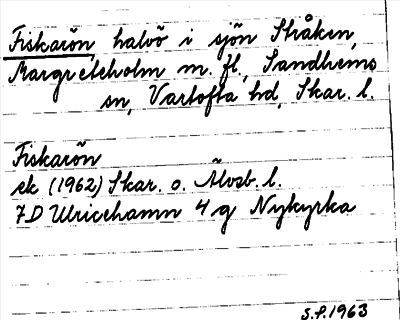 Fiskarön, halvö i sjön Stråken,
Margreteholm m. fl., Sandhems
sn, Vartofta hd, Skar. l.
Fiskarön
ek (1962) Skar. o. Älvsb. l.
7D Ulricehamn 4 g Nykyrka
S.F. 1963